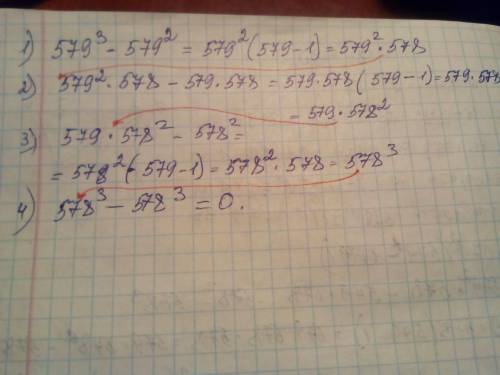 1) 579³ - 579² = 579² (579-1) = 579² · 578
2) 579² · 578 - 579 · 578 = 579 · 578 (579-1) = 579 · 578
= 579 · 578²
3) 579 · 578² - 578² =
= 578² (579-1) = 578² · 578 = 578³
4) 578³ - 578³ = 0.